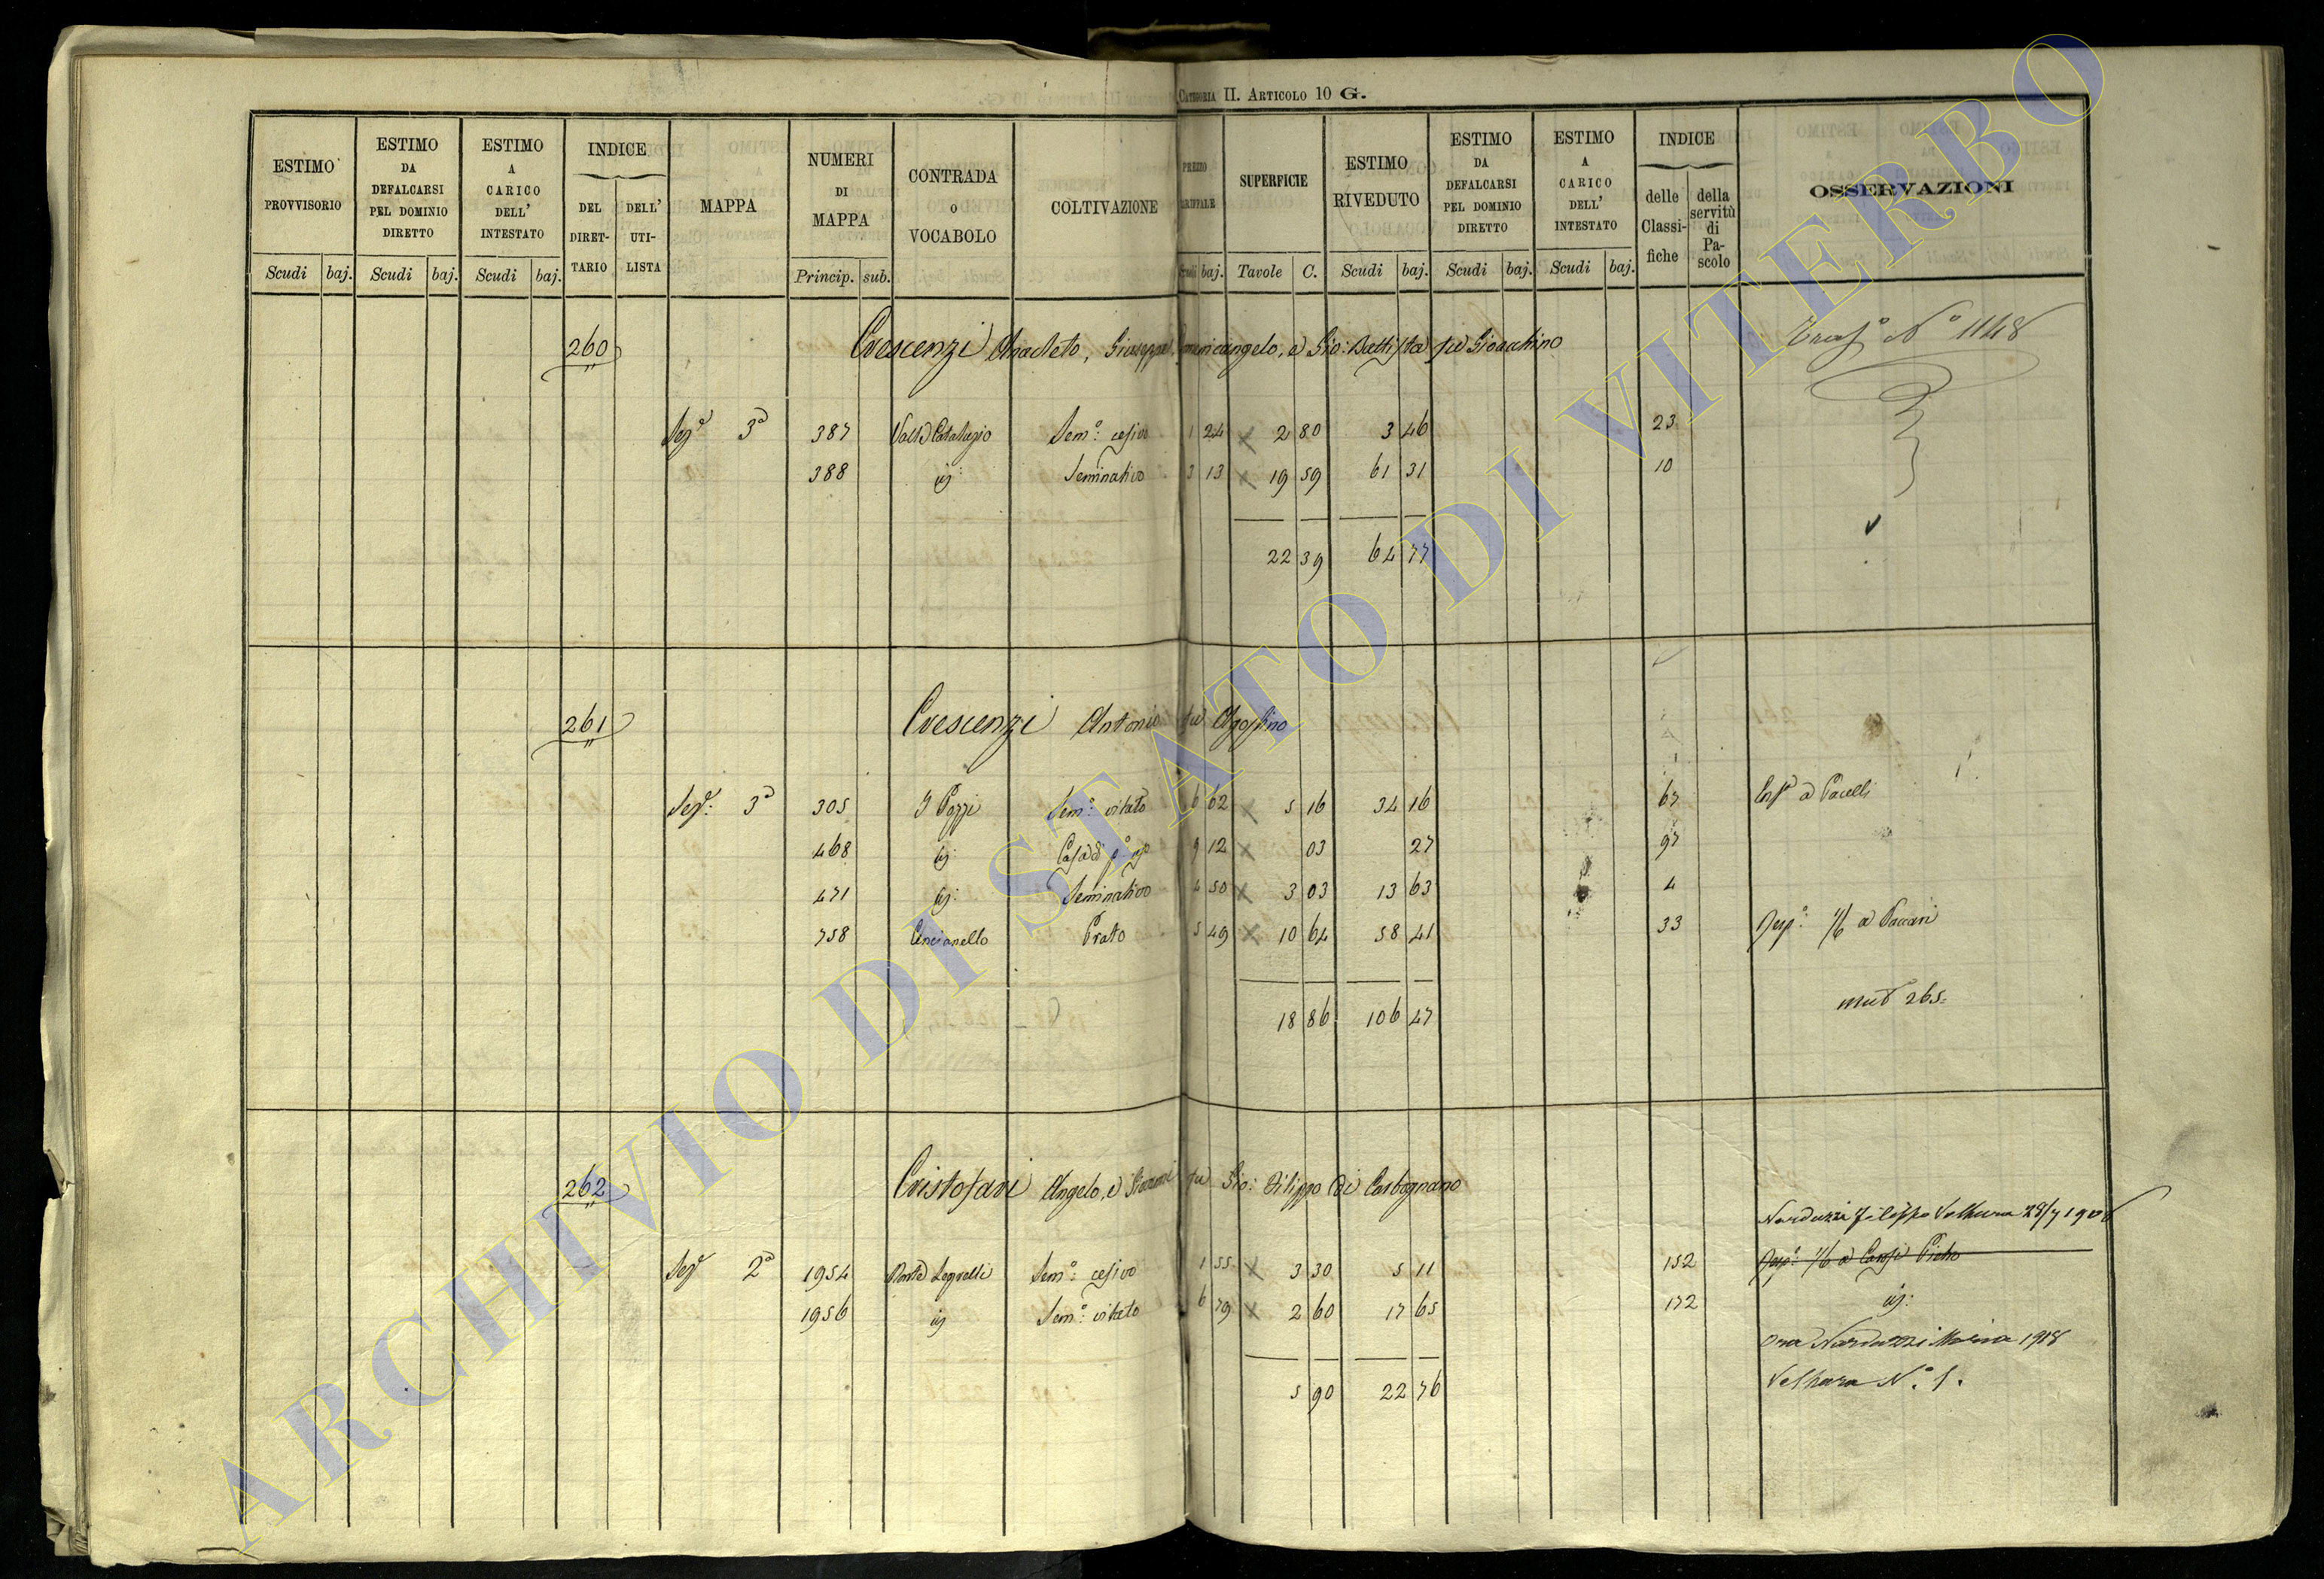 CATEGORIA II. ARTICOLO 10 G.
ESTIMO PROVVISORIO Scudi baj.
ESTIMO DA DEFALCARSI PEL DOMINIO DIRETTO Scudi baj.
ESTIMO A CARICO DELL' INTESTATO Scudi baj.
INDICE DEL DIRET-TARIO DELL' UTI-LISTA
MAPPA
NUMERI DI MAPPA Princip. sub.
CONTRADA O VOCABOLO
COLTIVAZIONE
PREZZO TARIFFALE Scudi baj.
SUPERFICIE Tavole C.
ESTIMO RIVEDUTO Scudi baj.
ESTIMO DA DEFALCARSI PEL DOMINIO DIRETTO Scudi baj.
ESTIMO A CARICO DELL' INTESTATO Scudi baj.
INDICE delle Classi-fiche della servitù di Pa-scolo
OSSERVAZIONI
260 Crescenzi Anacleto, Giuseppe, e Gio: Battista fu Gioacchino Trasp.o N.o 1148
Sez.e 3a 387 Sem.o cesivo 1 24 2 80 3 46 23
388 id: Seminativo 3 13 19 59 61 31 10
22 39 64 77
261 Crescenzi Antonio fu Agostino
Sez.e: 3a 305 I Pozzi Sem.o vitato 6 62 5 16 34 16 67 a Pacelli
468 id: Casa di p.o uso 9 12 03 27 97
471 id: Seminativo 4 50 3 03 13 63 4
758 Cencianello Prato 5 49 10 64 58 41 33 1/6 a Vaccari
18 86 106 47 mut 265
262 Cristofari Angelo, e Giovanni fu Gio: Filippo di Carbognano
Narduzzi Filippo Voltura 28/7 1908
Sez.e 2a 1954 Sem.o cesivo 1 55 3 30 5 11 152
1956 id Sem.o vitato 6 79 2 60 17 65 172 id:
Ora Narduzzi Maria 1918
5 90 22 76 Voltura N.o 1.
ARCHIVIO DI STATO DI VITERBO